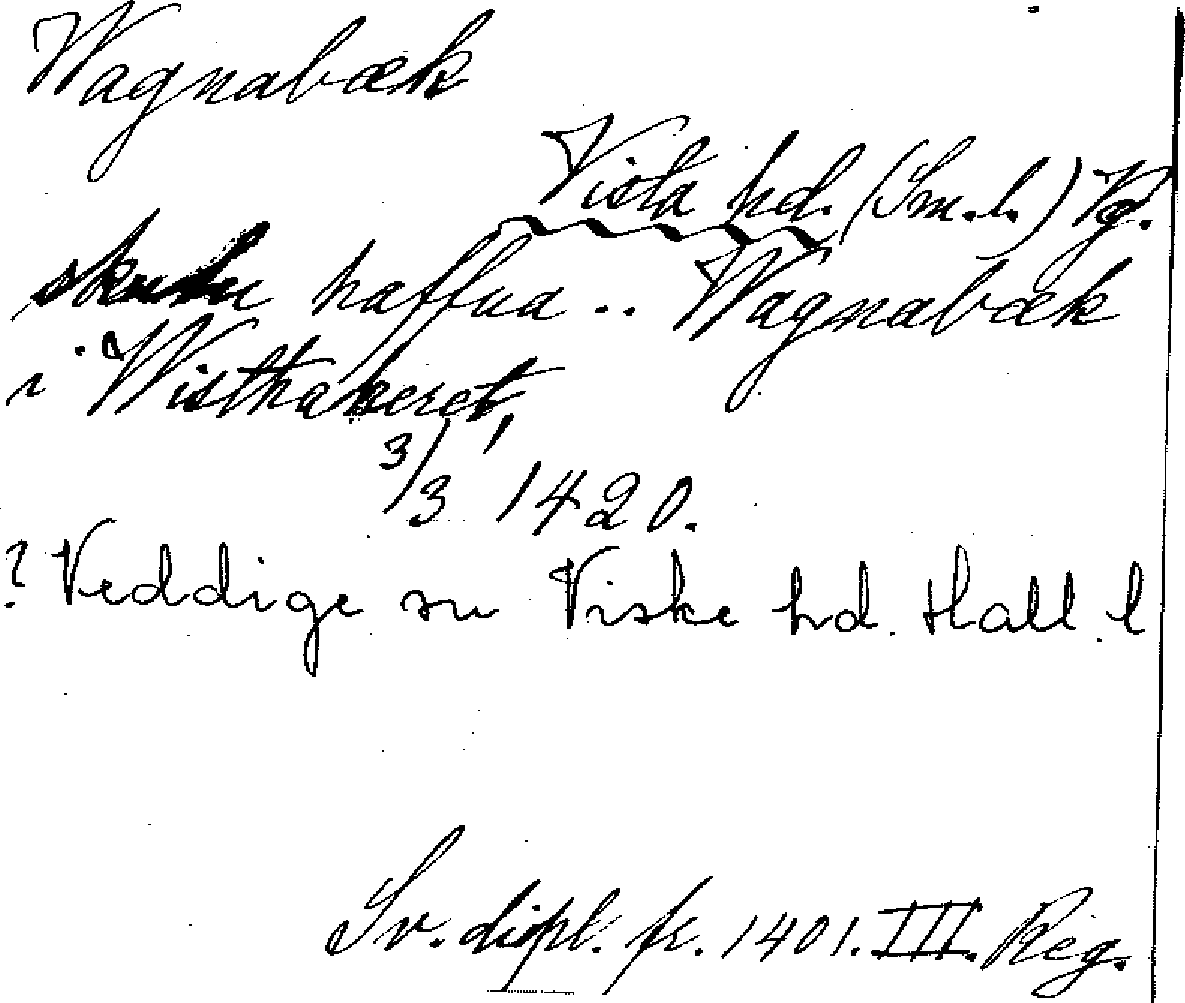 Wagnabæk
Vista hd. (Sm. l.) Vg.
skulu haffua .. Wagnabæk
i Wisthakeret,
3/3 1420.
? Veddige sn Viske hd. Hall. l
Sv. dipl. fr. 1401. III. Reg.